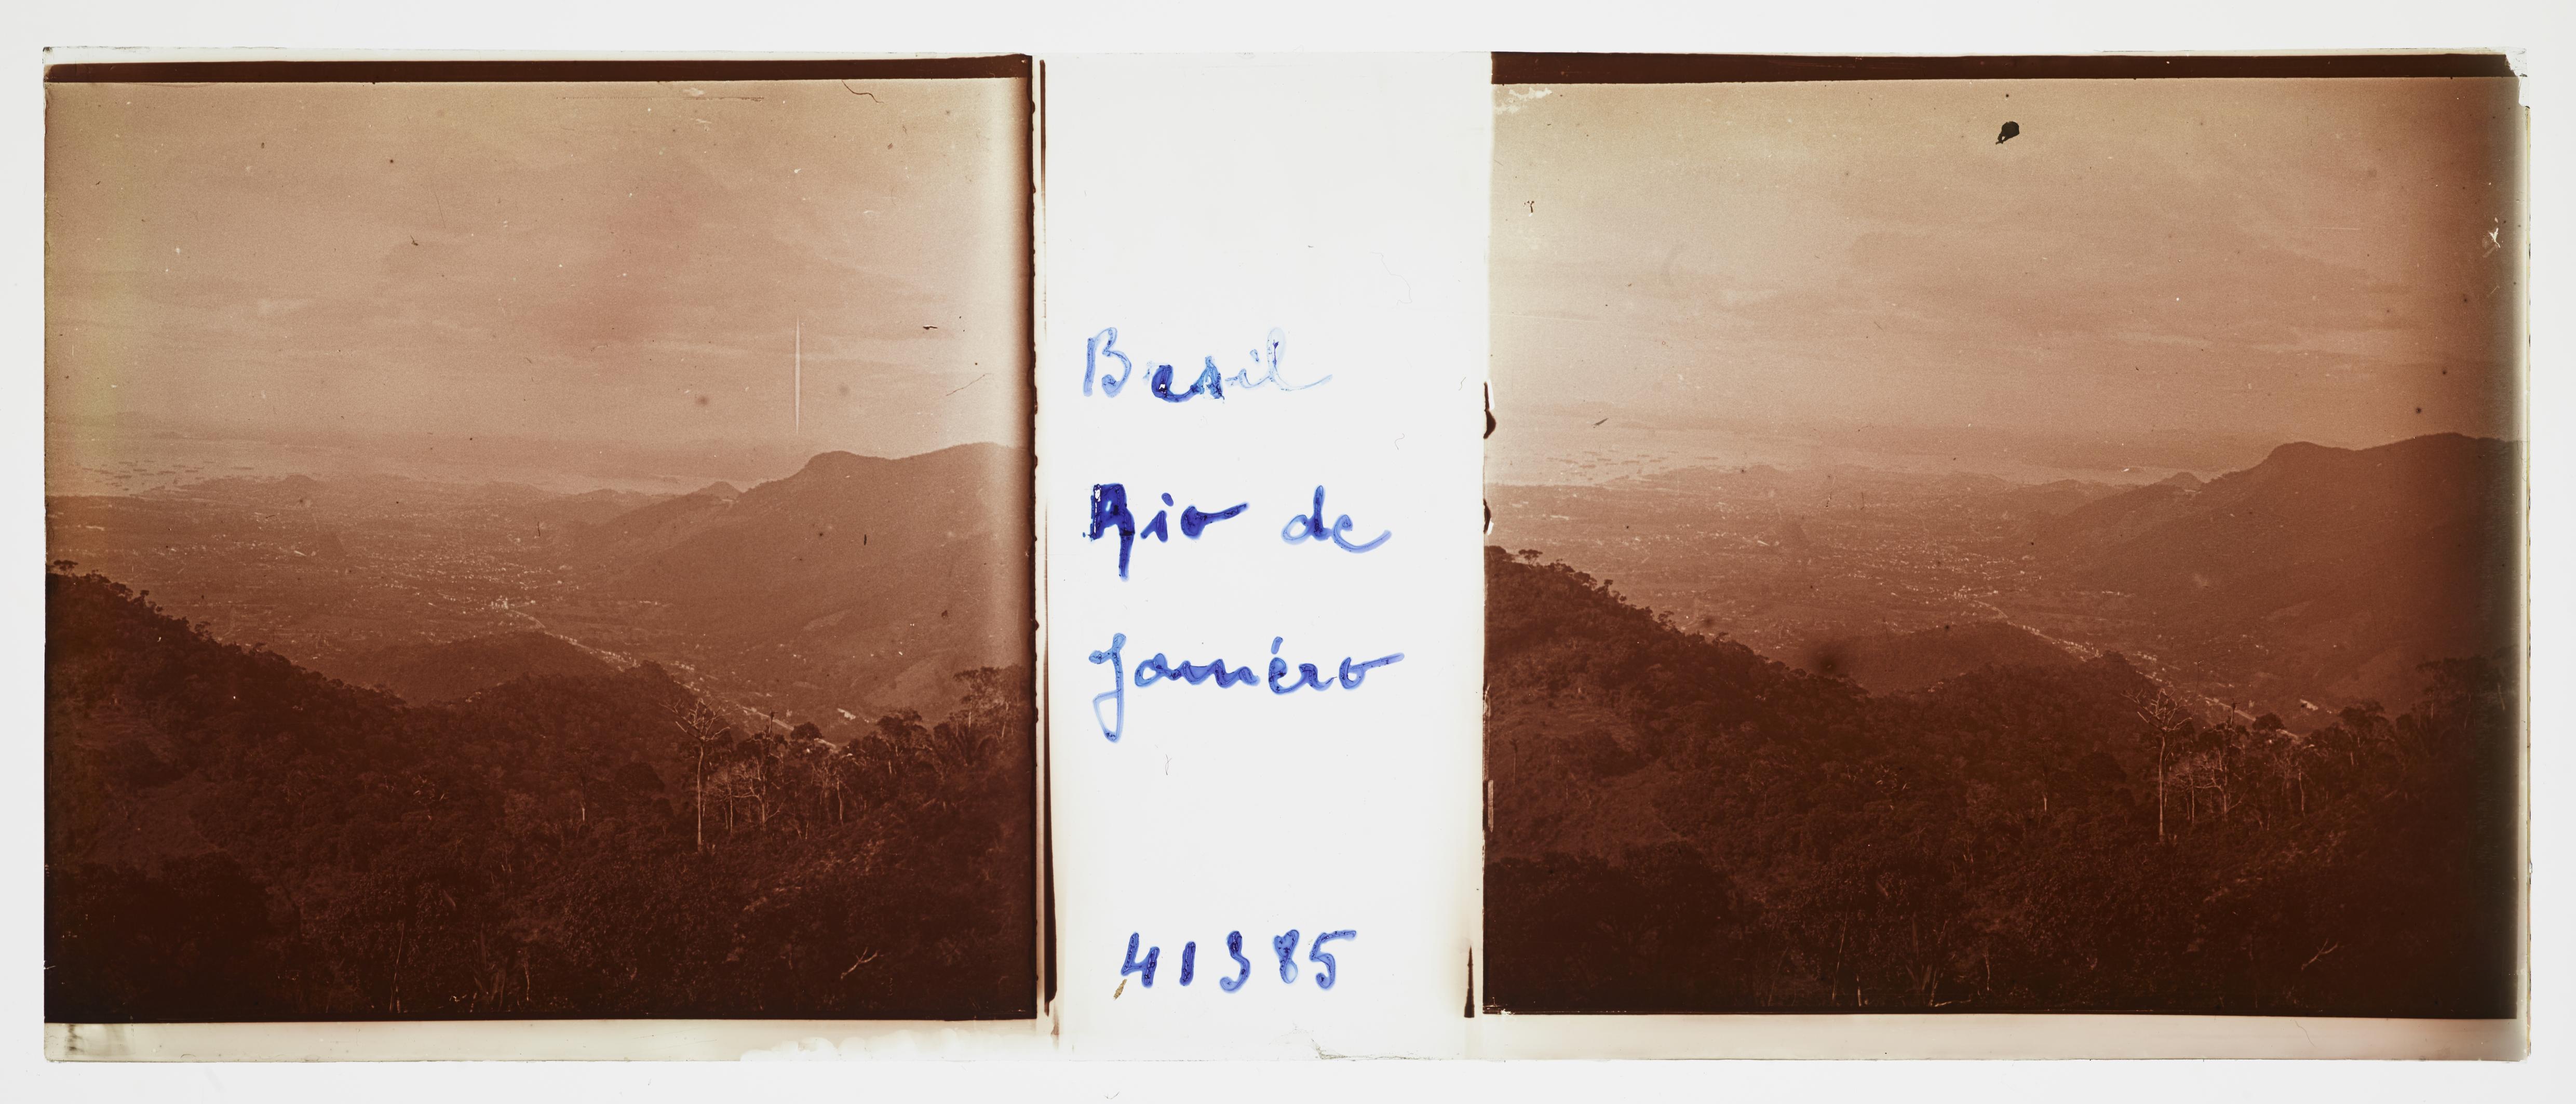 Bresil
Rio de
Janéro
41385